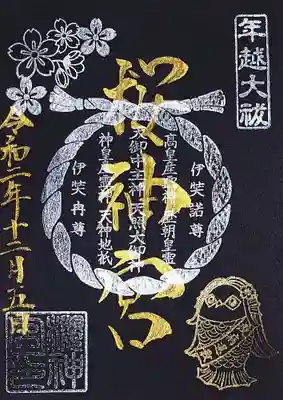 年越大祓
伊奘諾尊
高皇産霊神 歴朝皇霊
天御中主神 天照大御神
神皇産霊神 天神地祇
伊奘冉尊
桜神宮
令和二年十二月五日